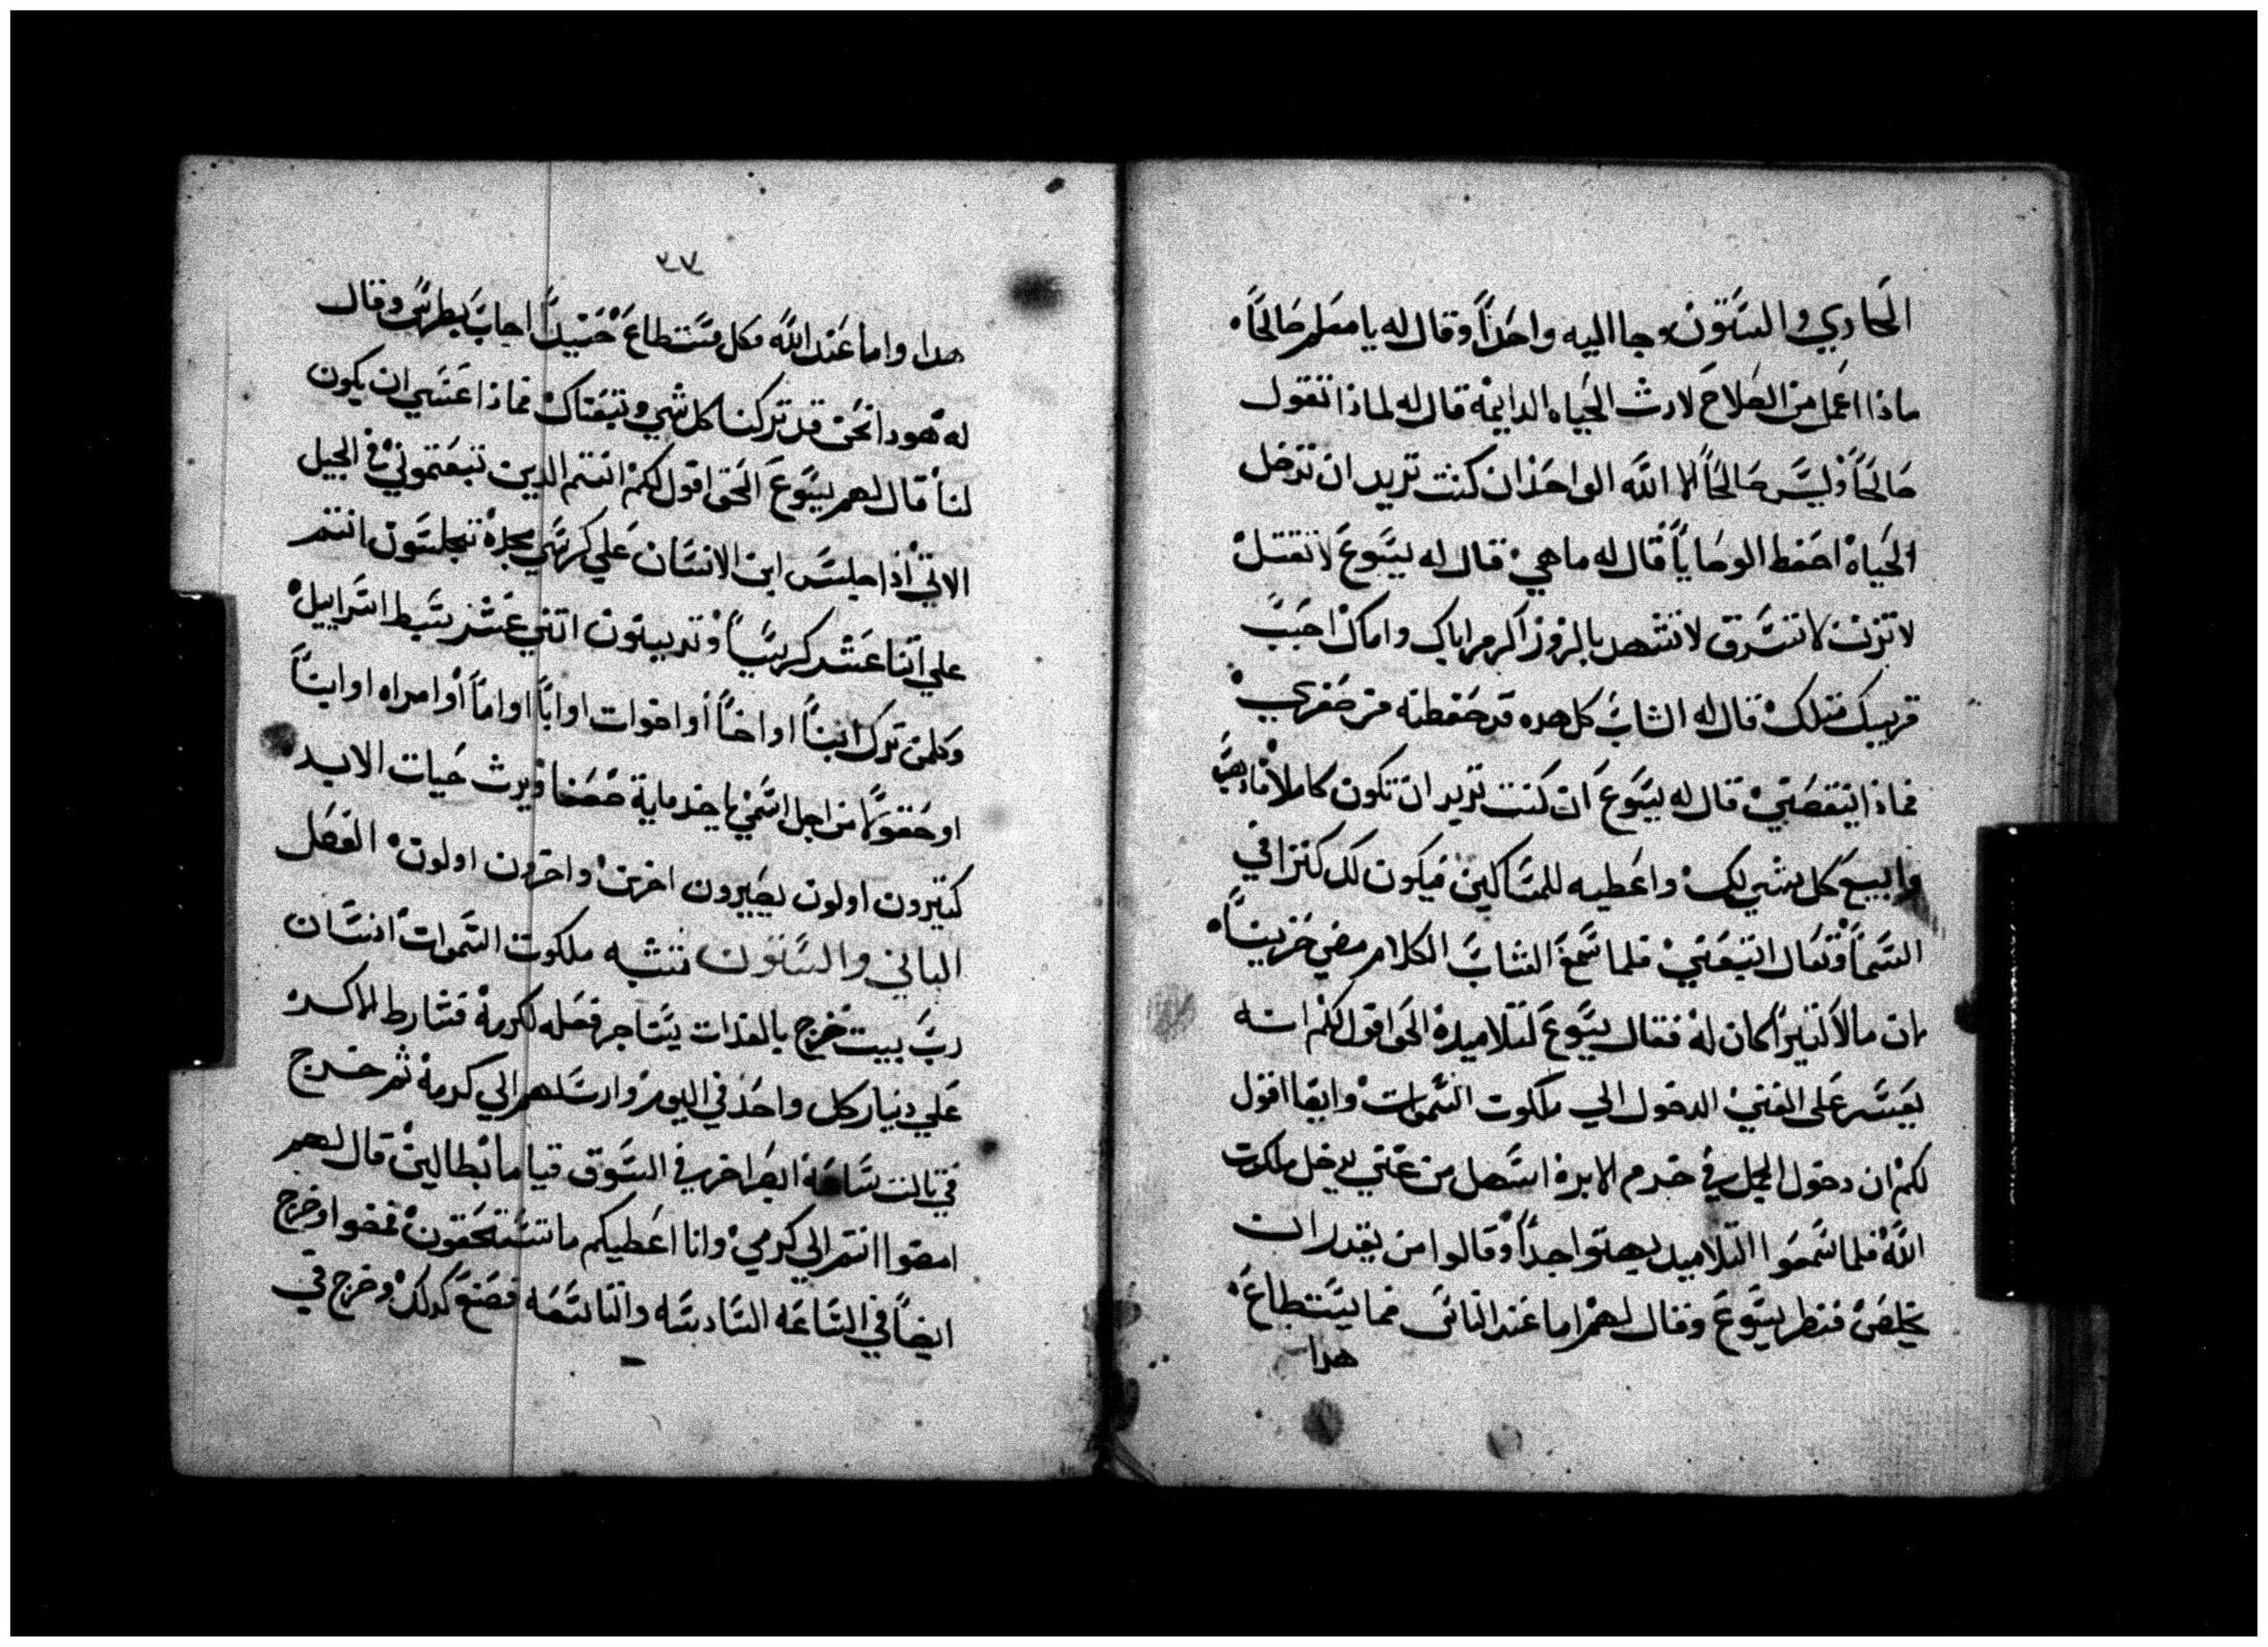 الحادي والستون وجا اليه واحداً وقال له يا معلم صالحاً
ماذا اعمل من الصلاح لارث الحياه الدايمة قال له لماذا تقول
صالحاً وليس صالحاً الا الله الواحد ان كنت تريد ان تدخل
الحياة احفظ الوصايا قال له ما هي قال له يسوع لا تقتل
لا تزن لا تسرق لا تشهد بالزور اكرم اباك وامك احبب
قريبك متلك قال له الشاب كل هده قد حفظته من صغري
فماذا ينقصني قال له يسوع ان كنت تريد ان تكون كاملاً فادهب
وابيع كل شي لك واعطيه للمساكين فيكون لك كنزا في
السما وتعال اتبعني فلما سمع الشاب الكلام مضي حزيناً
ان مالا كتيراً كان له فقال يسوع لتلاميده الحق اقول لكم انه
يعسر على الغني الدخول الي ملكوت السموات وايضا اقول
لكم ان دخول الجمل في خرم الابرة اسهل من غني يدخل ملكوت
الله فلما سمعوا التلاميد بهتوا جداً وقالوا من يقدر ان
يخلص فنظر يسوع وقال لهم اما عند الناس فما يستطاع
هدا
٧٧
هدا واما عند الله فكل مستطاع حينيداً اجاب بطرس وقال
له هودا نحن قد تركنا كل شي وتبعناك فماذا عسي ان يكون
لنا قال لهم يسوع الحق اقول لكم انتم الدين تبعتموني في الجيل
الاتي اذا جلس ابن الانسان علي كرسي مجده تجلسون انتم
علي اتنا عشر كرسياً وتدينون اتني عشر سبط اسراييل
وكلمن ترك ابناً او اخاً أو اخوات او اباً او اماً أو امراه او ابناً
او حقولاً من اجل اسمي ياخد ماية ضعفا ويرث حيات الابد
كتيرون اولون يصيرون اخرين واخرون اولون الفصل
التاني والستون تشبه ملكوت السموات انسان
رب بيت خرج بالغدات يستاجر فعله لكرمة فشارط الاكره
علي دينار كل واحد في اليوم وارسلهم الي كرمة ثم خرج
في تالت ساعة ابصر اخر في السوق قياماً بطالين قال لهم
امضوا انتم الي كرمي وانا اعطيكم ما تستحقون فمضوا وخرج
ايضاً في الساعه السادسه والتاسعه فصنع كدلك وخرج في